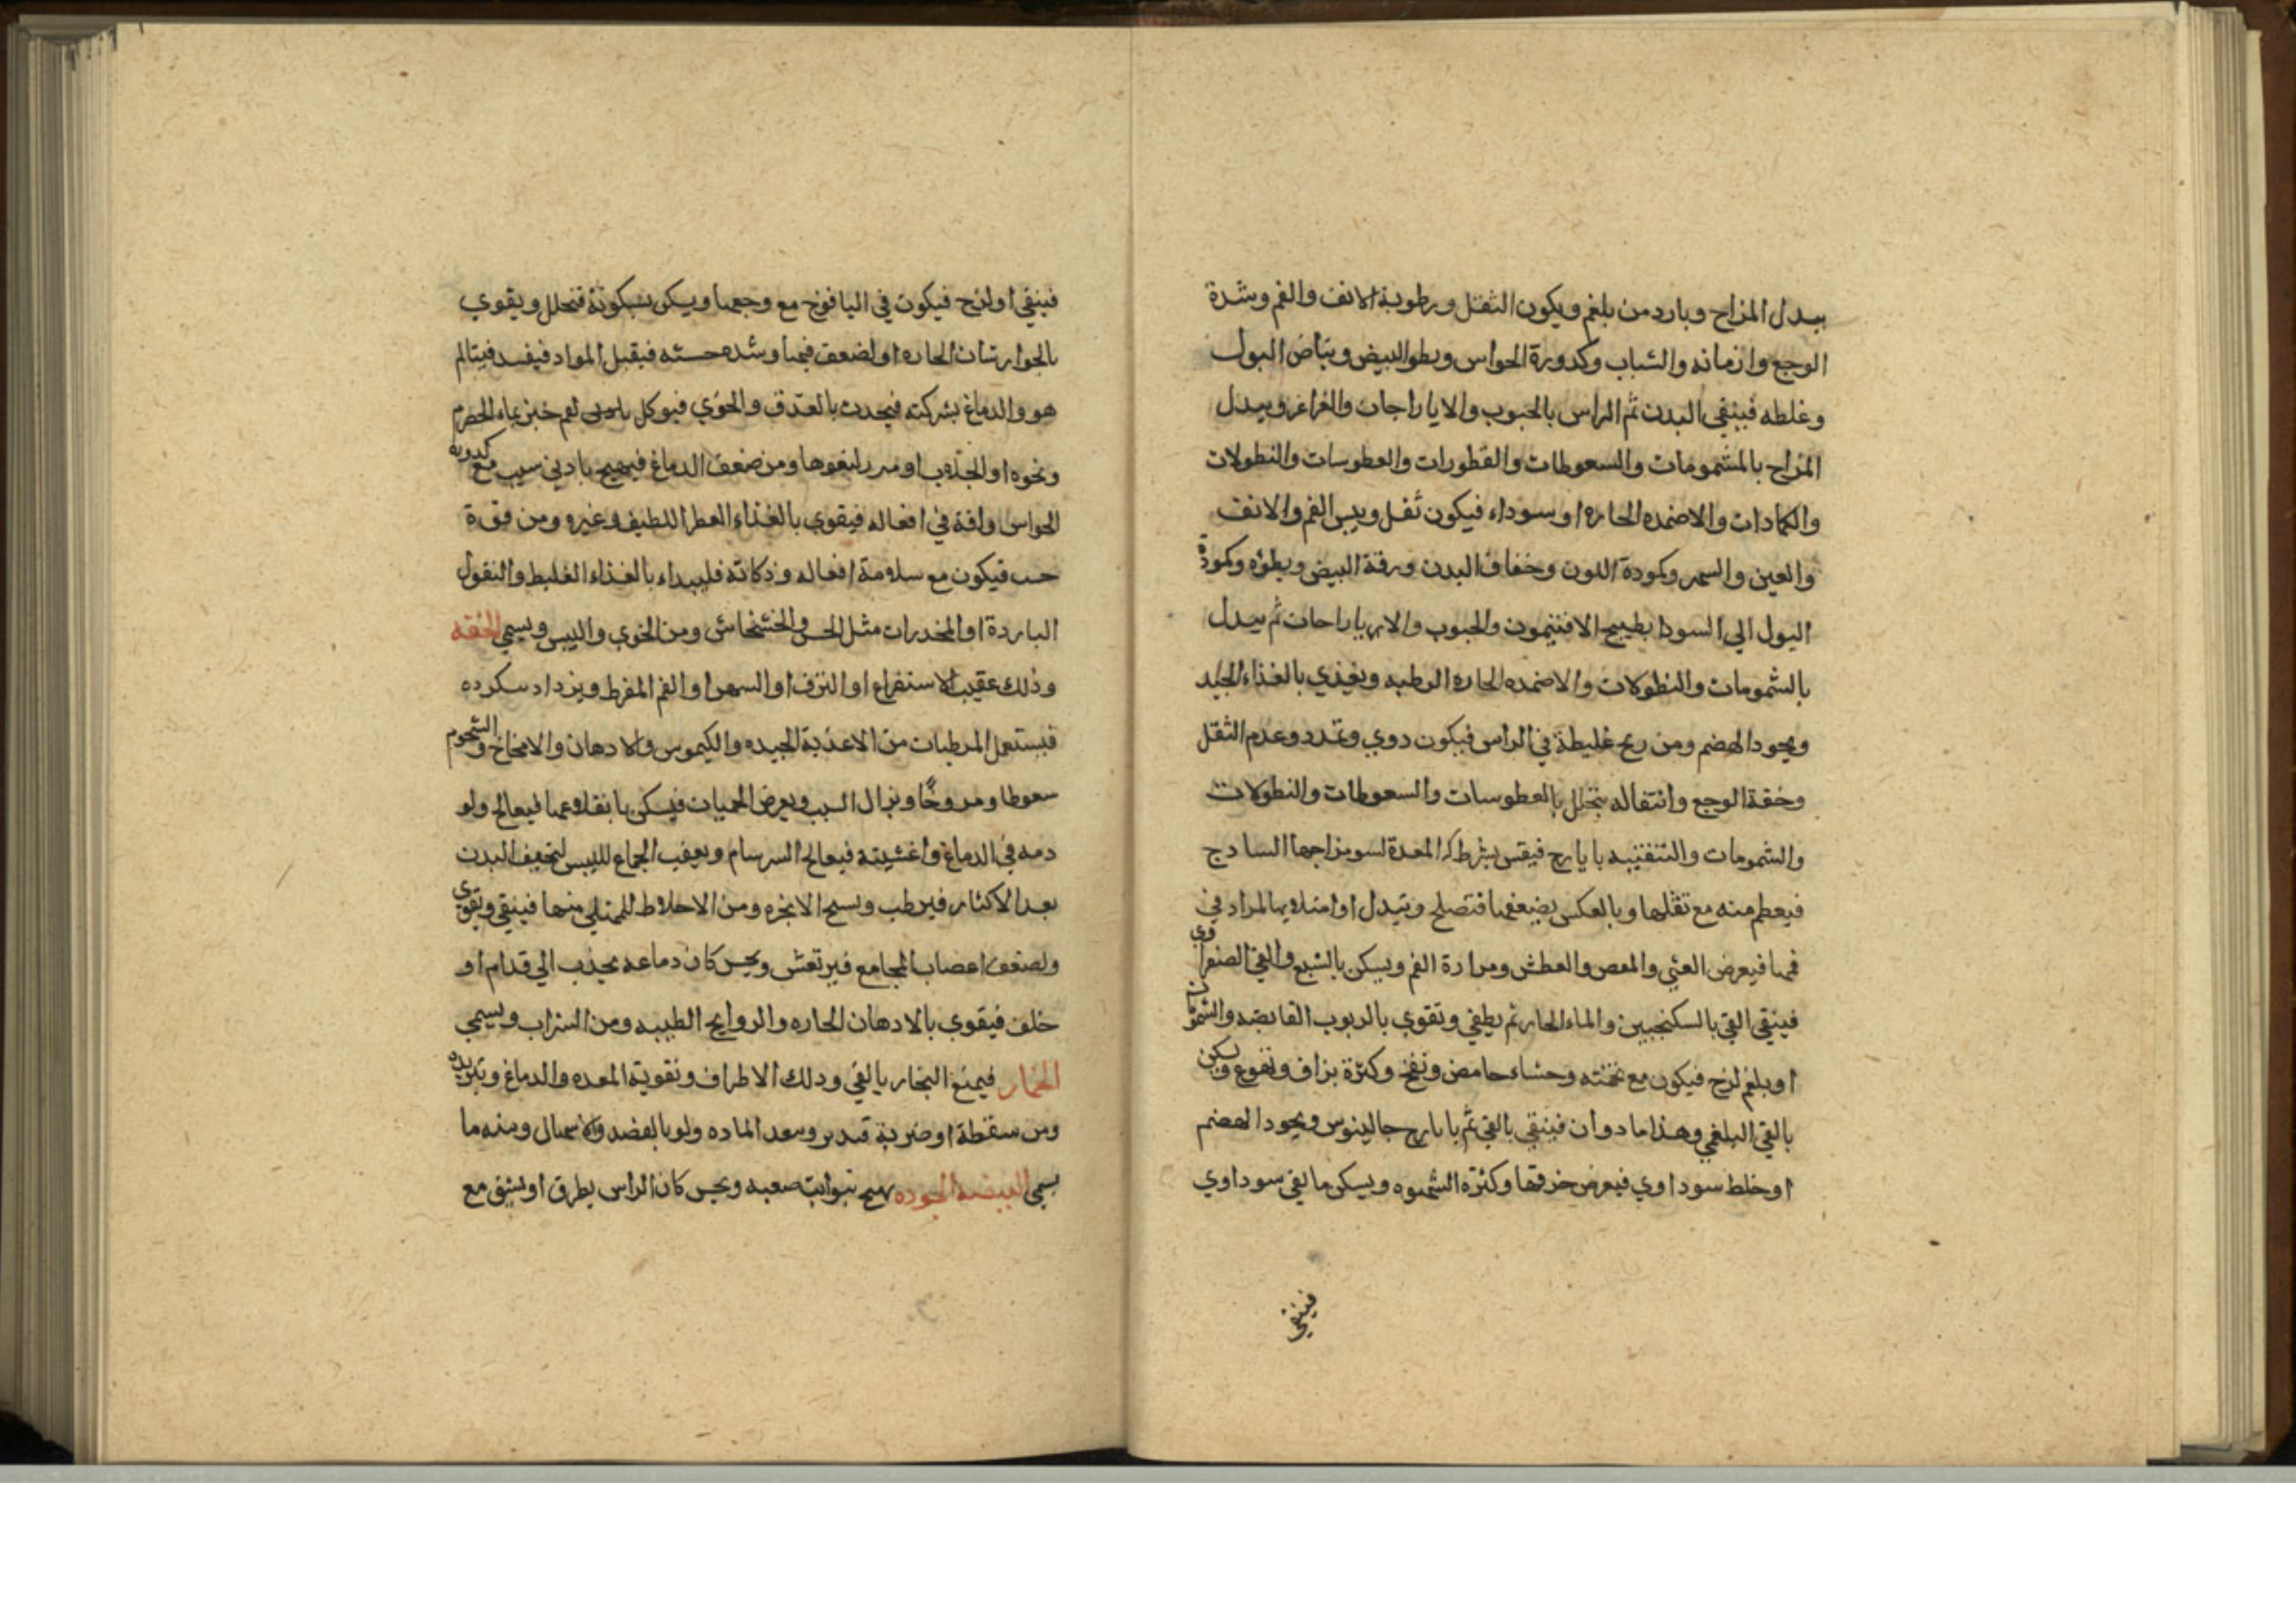 يبدل المزاج وبارد من بلغم ويكون الثقل ورطوبة الانف والفم وشدة
الوجع وازمانه والشباب وكدورة الحواس وبطو البيض وبياض البول
وغلطه فينقي البدن ثم الراس بالحبوب والاياراجات والغراغر ويبدل
المزاج بالمشمومات والسعوطات والقطورات والعطوسات والنطولات
والكمادات والاضمده الحاره او سوداء فيكون ثقل ويبس الفم والانف
والعين والسهر وكمودة اللون وخفاف البدن ورقة البيض وبطؤه وكمودة
البول الي السودا بطبيخ الافتيمون والحبوب والاياراجات ثم يبدل
بالشمومات والنطولات والاضمده الحاره الرطبه ويغذي بالغذاء الجيد
ويجود الهضم ومن ريح غليظة في الراس فيكون دوي وتمدد وعدم الثقل
وخفة الوجع وانتقاله يتحلل بالعطوسات والسعوطات والنطولات
والشمومات والتنقيه بايارج فيقس بشركه المعدة لسو مزاجها السادج
فيعطم منه مع تقلها وبالعكس بضعفها فتصلح ويتبدل او امتلايها المراد في
فمها فيعرض الغثي والمعص والعطش ومرارة الفم ويسكن بالشبع والقي الصفراوي
فينقي القي بالسكنجبين والماء الحار ثم يطفي وتقوي بالربوب القابضه والشمومات
او بلغم لزج فيكون مع تخمته وحشاء حامض ونفخ وكثرة بزاق وتفوع ويسكن
بالقي البلغمي وهذا مادوان فينقي بالقي ثم بايارج جالينوس ويجود الهضم
او خلط سوداوي فيعرض حرقها وكثرة الشهوه ويسكن ما بقي سوداوي
فينقي
فينقي او لزج فيكون في اليافوخ مع وجعها ويسكن بسكونة فتحلل ويقوي
بالجوارشان الحاره او لضعف فمها وشده حسته فيقبل المواد فيفسد فيتالم
هو والدماغ بشركته فيحدث بالعذق والخوي فيوكل لقم خبز بماء الحصرم
ونحوه او الجذب او ومن ضعف الدماغ فيهيج بادني سبب مع كدورة
الحواس وافة في افعاله فيقوي بالغذاء العطر اللطيف وغيره ومن قوة
حسب فيكون مع سلامة افعاله وذكاته فليبداء بالغذاء الغليط والبقول
الباردة او المخدرات مثل الخس والخشخاش ومن الخوي واليبس ويسمي الخفه
وذلك عقيب الاستفراع او النزف او السهر او الغم المفرط ويزداد سكرده
فيستعمل المرطبات من الاعذية الجيده والكيموس والادهان والامخاخ والشحوم
سعوطا ومروخا ويزال السبب ويعرض الحميات فيسكن باقلاعها فيعالج ولو
دمه في الدماغ واغشيته فيعالج السرسام ويعقب الجماع لليبس لتجفيف البدن
بعد الاكثار فيرطب ويسيح الابخره ومن الاحلاط للممتلي منها فينقي ويقوي
ولضعف اعصاب المجامع فيرتعش ويحس كان دماعه يجذب الي قدام او
خلف فيقوي بالادهان الحاره والروايح الطيبه ومن الشراب ويسمي
الخمار فيمنع البخار بالقي ودلك الاطراف وتقوية المعده والدماغ وتبريده
ومن سقطة او ضربة قيدبر وبعد الماده ولو بالفصد والاسهال ومنه ما
يسمي البيضه الخوده يهيج بنوايب صعبه ويحس كان الراس يطرق او يشق مع